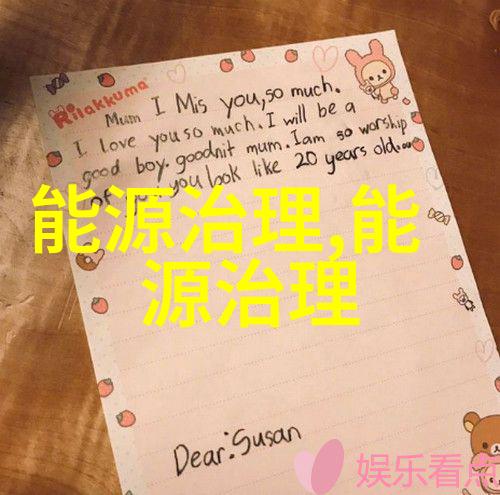 Rilakkuma
Mum I Mis you,so much.
I love you so much. I will be a
good boy. goodnit mum. Iam so worship
of you you look like 20 years old.
能源治理,能
源治理
Dear:Susan
娱乐看点